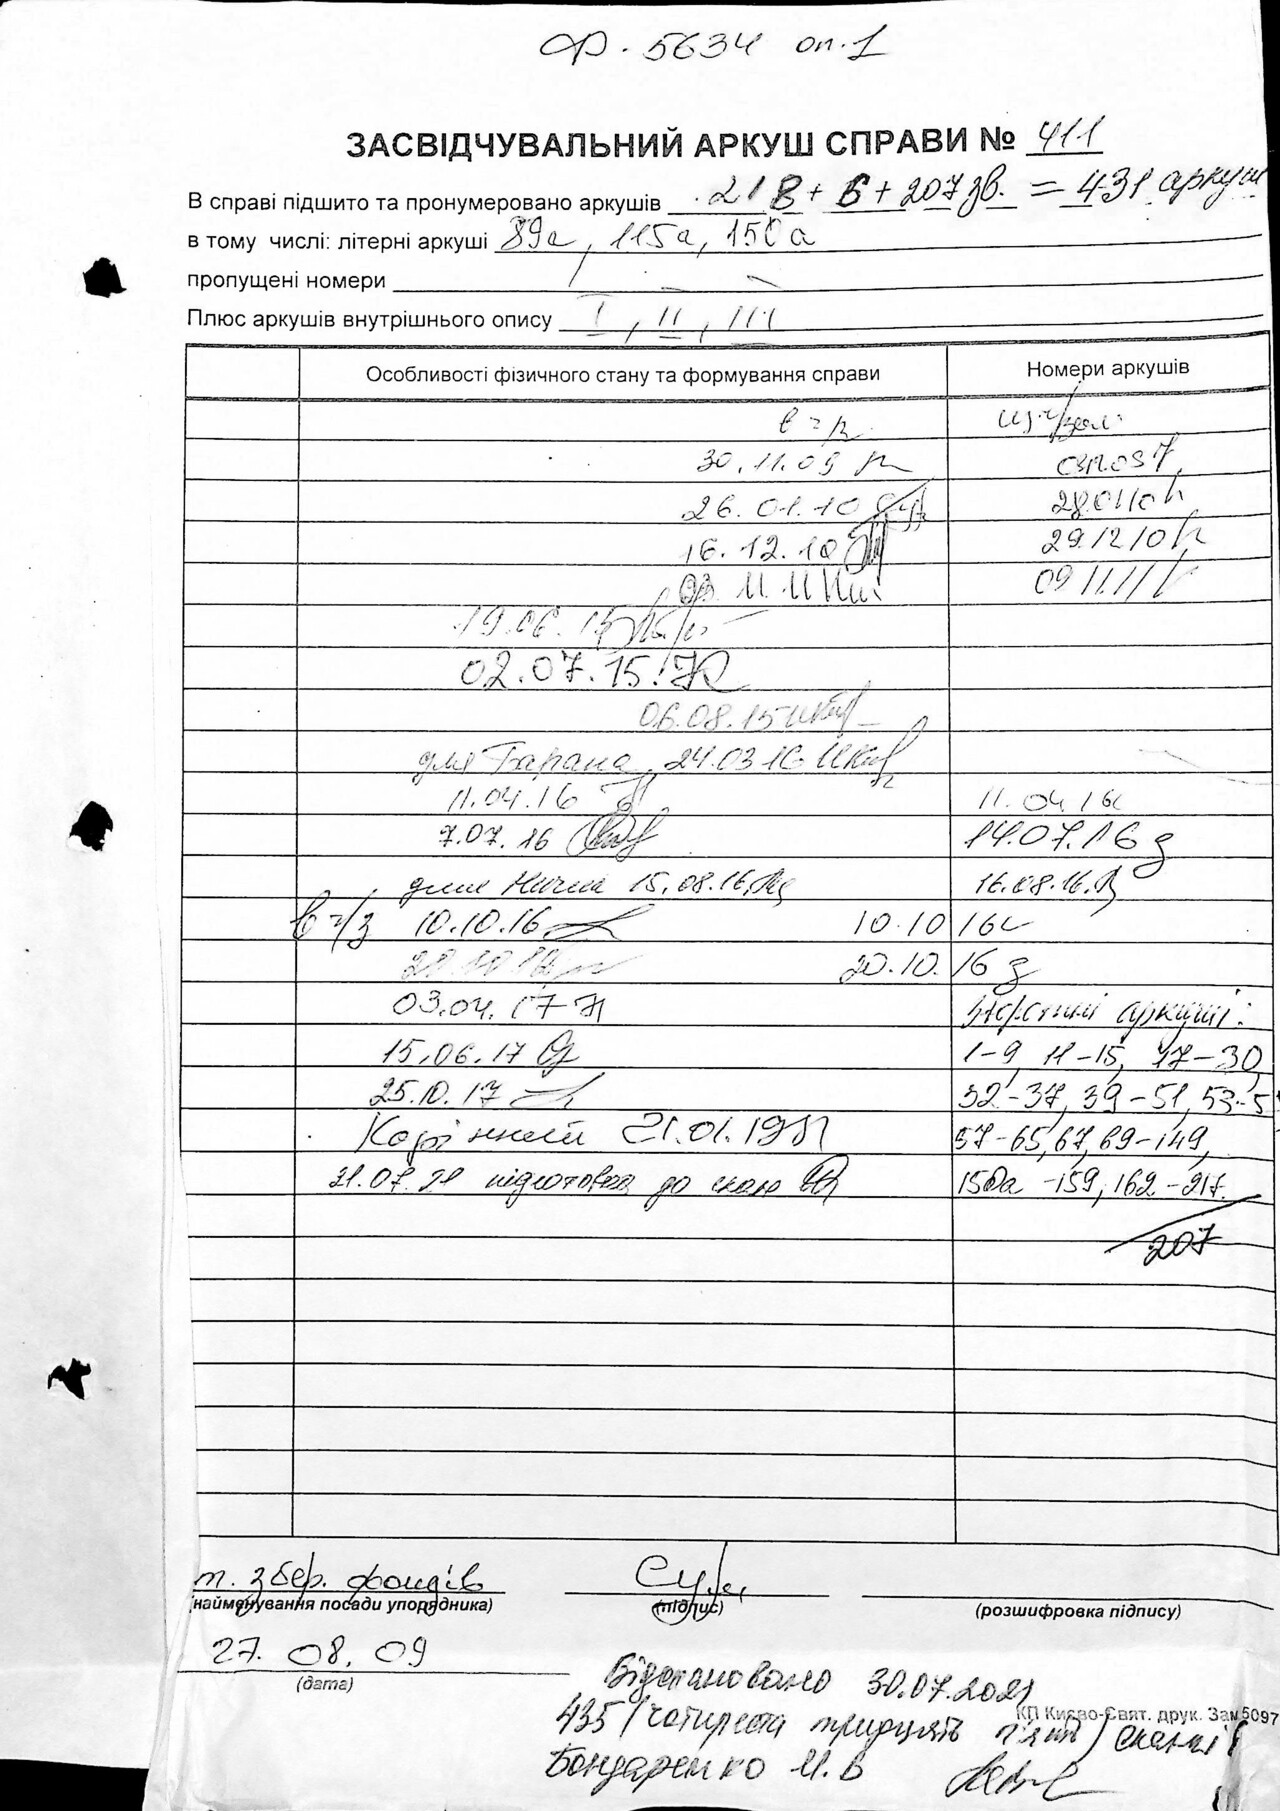 Ф. 5634 оп. 1
ЗАСВІДЧУВАЛЬНИЙ АРКУШ СПРАВИ № 411
В справі підшито та пронумеровано аркушів 218 + 6 + 207 зв. = 431 аркуш
в тому числі: літерні аркуші 89а, 115а, 150а
пропущені номери
Плюс аркушів внутрішнього опису I, II, III
Особливості фізичного стану та формування справи Номери аркушів
30.11.09
26.01.10 28.01.10
16.12.10 29.12.10
11.11 09.11.11
19.06.15
02.07.15
06.08.15
для Барана 24.03.16
11.04.16 11.04.16
7.07.16 14.07.16
для 15.08.16 16.08.16
10.10.16 10.10.16
20.10.16
03.04.17 Звортні аркуші:
15.06.17 1-9, 11-15, 17-30,
25.10.17 32-37, 39-51, 53-5
21.01.19 57-65, 67, 69-149,
21.07.21 підготовка до скан 150а-159, 162-217.
207
т. збер. фондів
(найменування посади упорядника) (підпис) (розшифровка підпису)
27.08.09
(дата)
Відскановано 30.07.2021
КП Києво-Свят. друк. Зам 5097
435 (чотириста тридцять п'ять) скани
Бондаренко И.В